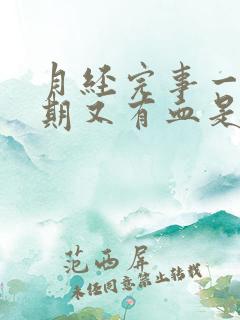 月经完事一
期又有血是
范西屏
未经同意禁止转载